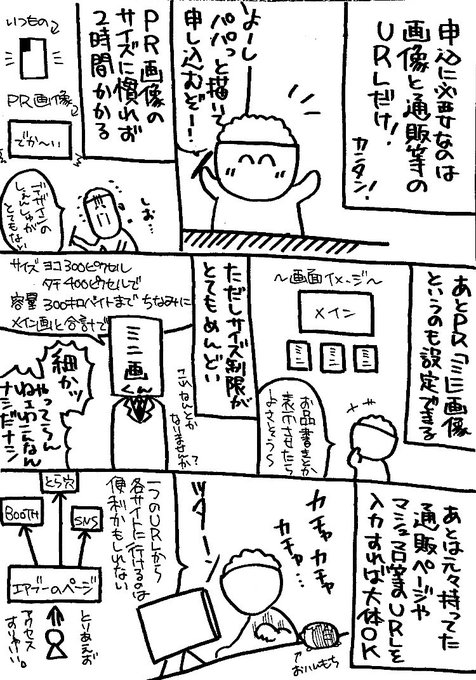 申込に必要なのは
画像と通販等の
URLだけ!
カンタン!
よーし
パパっと描いて
申し込むぞー!
PR画像の
サイズに慣れず
2時間かかる
いつもの
PR画像
でか〜い
しお…
デザインの
しんしゅが
とてもない
あとPR「ミニ画像
というのも設定できる
〜画面イメージ〜
メイン
ミニ
ミニ
ミニ
お品書きとか
表示させたら
よさそう〜
ただしサイズ制限が
とてもめんどい
サイズ ヨコ300ピクセル
タテ400ピクセルで
容量 300キロバイトまで ちなみに
メイン画と合計で
ミニ画くん
こいなんとか
なりませんか?
細かッ
やってらん
ねェわこんなん
ナシだナシ
あとは元々持ってた
通販ページや
マシュマロ等のURLを
入力すれば大体OK
カチャカチャ
カチャ…
ッターン
おハレもち
一つのURLから
各サイトに行けるのは
便利かもしれない
とら穴
BOOTH
SNS
エアブーのページ
とりあえず
アクセス
すりゃいい。